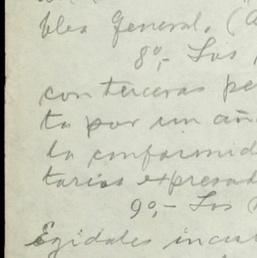 blea General. (A
8o,- Los
con terceras pe
ta por un añ
la conformid
tarios expresad
9o,- Los
Egidales incu